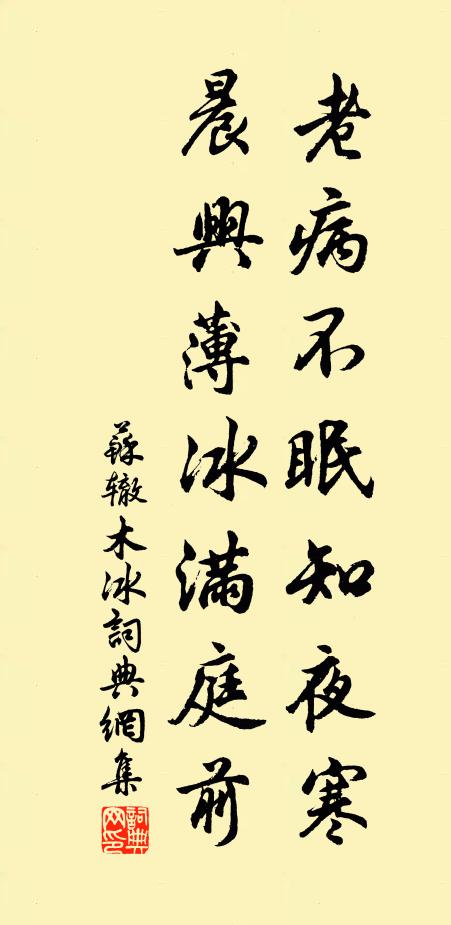 老病不眠知夜寒
晨興薄冰滿庭前
蘇辙木冰詞典網集
詞典网印